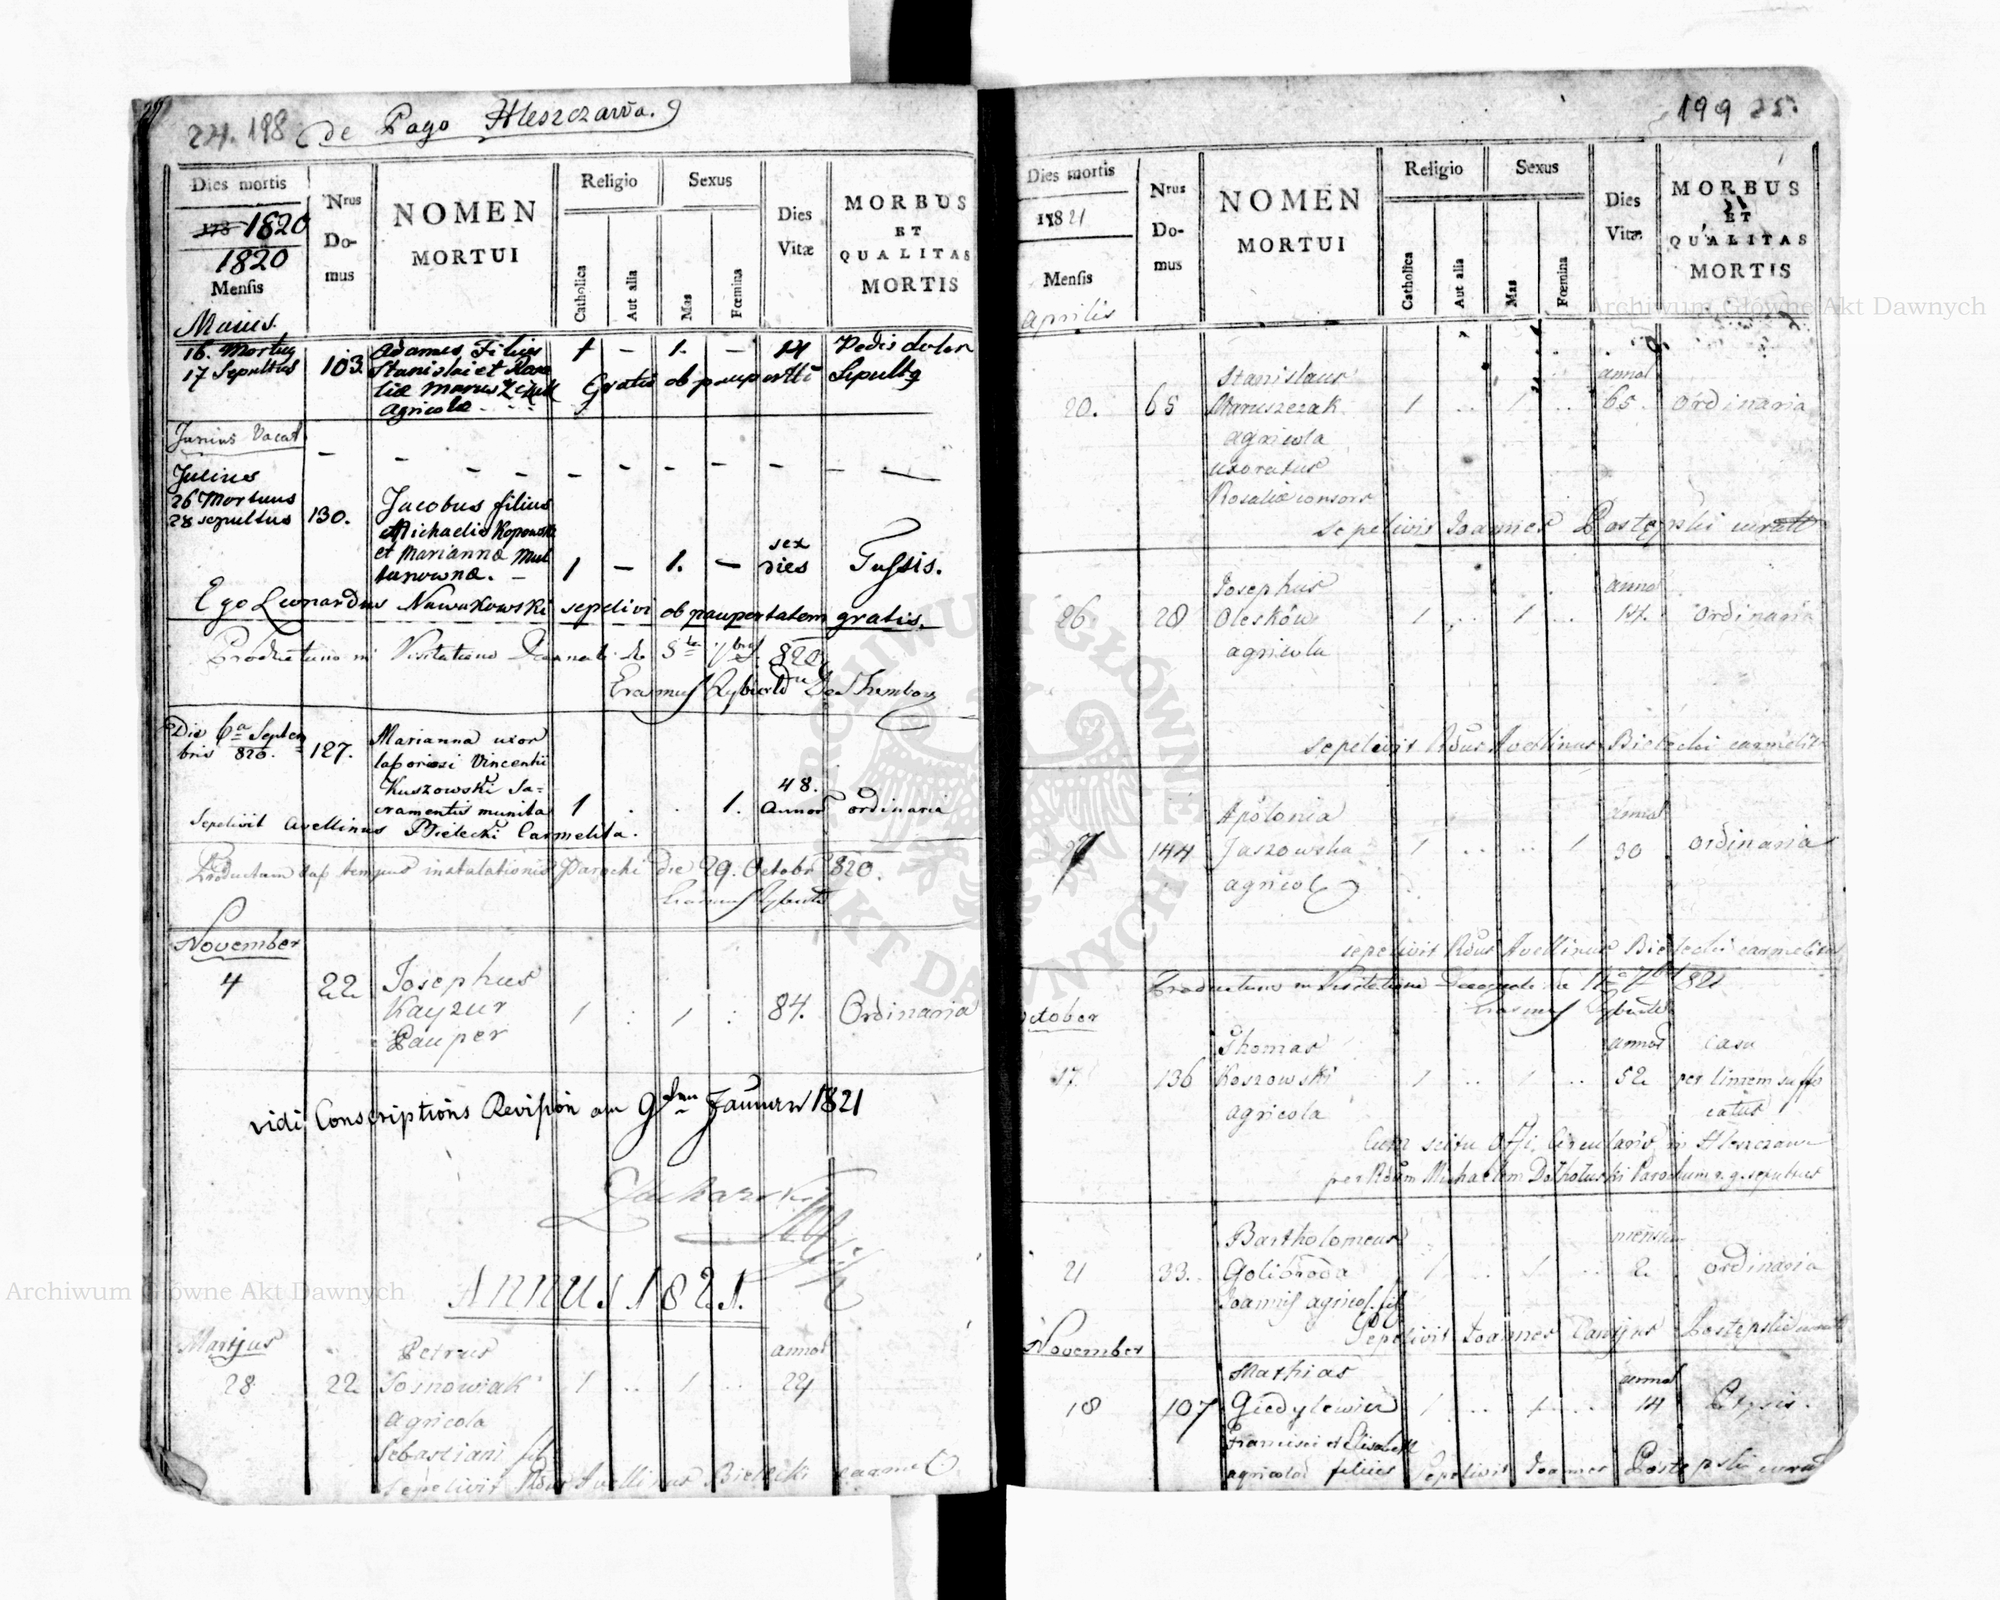 24. 198 de Pago Hleszczawa.
Dies mortis
178 1820
1820
Mensis
Maius.
Nrus
Do-
mus
NOMEN
MORTUI
Religio
Catholica
Aut alia
Sexus
Mas
Fœmina
Dies
Vitæ
MORBUS
ET
QUALITAS
MORTIS
16. Mortuq 103. Adamus Filius 1 – 1. – 14 Pedis dolor
17 Sepultus Stanislai et Rosa Gratis ob paupertti Sepultq
liæ Maruszczak
Agricolæ
Junius Vacat
Julius
26 Mortuus
28 sepultus 130. Jacobus filius
Michaelis Kopowski
et Mariannæ Mul sex
tanownæ. – 1 – 1. – dies Tussis.
Ego Leonardus Nawakowski sepelivi ob paupertatem gratis.
Productum in Visitatione Decanali de 5ta 7bris 820
Erasmus Rybicki
Die 6ta Septem
bris 820. 127. Marianna uxor
laboriosi Vincentii
Kuszowski Sa- 48.
cramentis munita 1 . . 1. Annor ordinaria
Sepelivit Avellinus Bielecki Carmelita.
Productum tempus instalationis Parochi Die 29. Octobr 820.
November
4 22 Josephus
Kayzur 1 : 1 : 84. Ordinaria
Pauper
vidi Conscriptions Revision am 9ten Jaunner 1821
Annus 1821.
Martjus Petrus annor
28 22 Sosnowiak 1 .. 1 .. 24
agricola
Sebastiani fil
sepelivit Rdus Avellinus Bielecki carmel
199 25.
Dies mortis
1821
Mensis
Aprilis
Nrus
Do-
mus
NOMEN
MORTUI
Religio
Catholica
Aut alia
Sexus
Mas
Fœmina
Dies
Vitæ
MORBUS
ET
QUALITAS
MORTIS
Stanislaus annor
20. 65 Maruszczak 1 .. 1 .. 65. Ordinaria
agricola
uxoratus
Rosaliæ consors
sepelivit Joannes Postępski
Josephus annor
26 28 Olesków 1 .. 1 .. 14. Ordinaria
agricola
sepelivit Rdus Avellinus Bielecki carmelita
Apolonia annor
144 Jaszowska 1 .. .. 1 30 Ordinaria
agricol
sepelivit Rdus Avellinus Bielecki carmelitus
Productum in Visitatione Decanali de 11a 7bris 821
October
Thomas annor Casu
17 136 Koszowski 1 .. 1 .. 52 per linzem suffo
agricola catus
Cum scitu Offi. Circularis in Hleszczawa
per Rdum Michaelem Parochum sepultus
Bartholomeus mensium
21 33. Golibroda 1 .. 1 .. 2. Ordinaria
Joannis agricol. fil
Sepelivit Joannes Postępski
November
Mathias annor
18 107 Giedylewicz 1 .. 1 .. 14
Francisci et Elisabeth
agricolar filius Sepelivit Joannes Postępski curat
Archiwum Główne Akt Dawnych
Archiwum Główne Akt Dawnych
ARCHIWUM GŁÓWNE AKT DAWNYCH